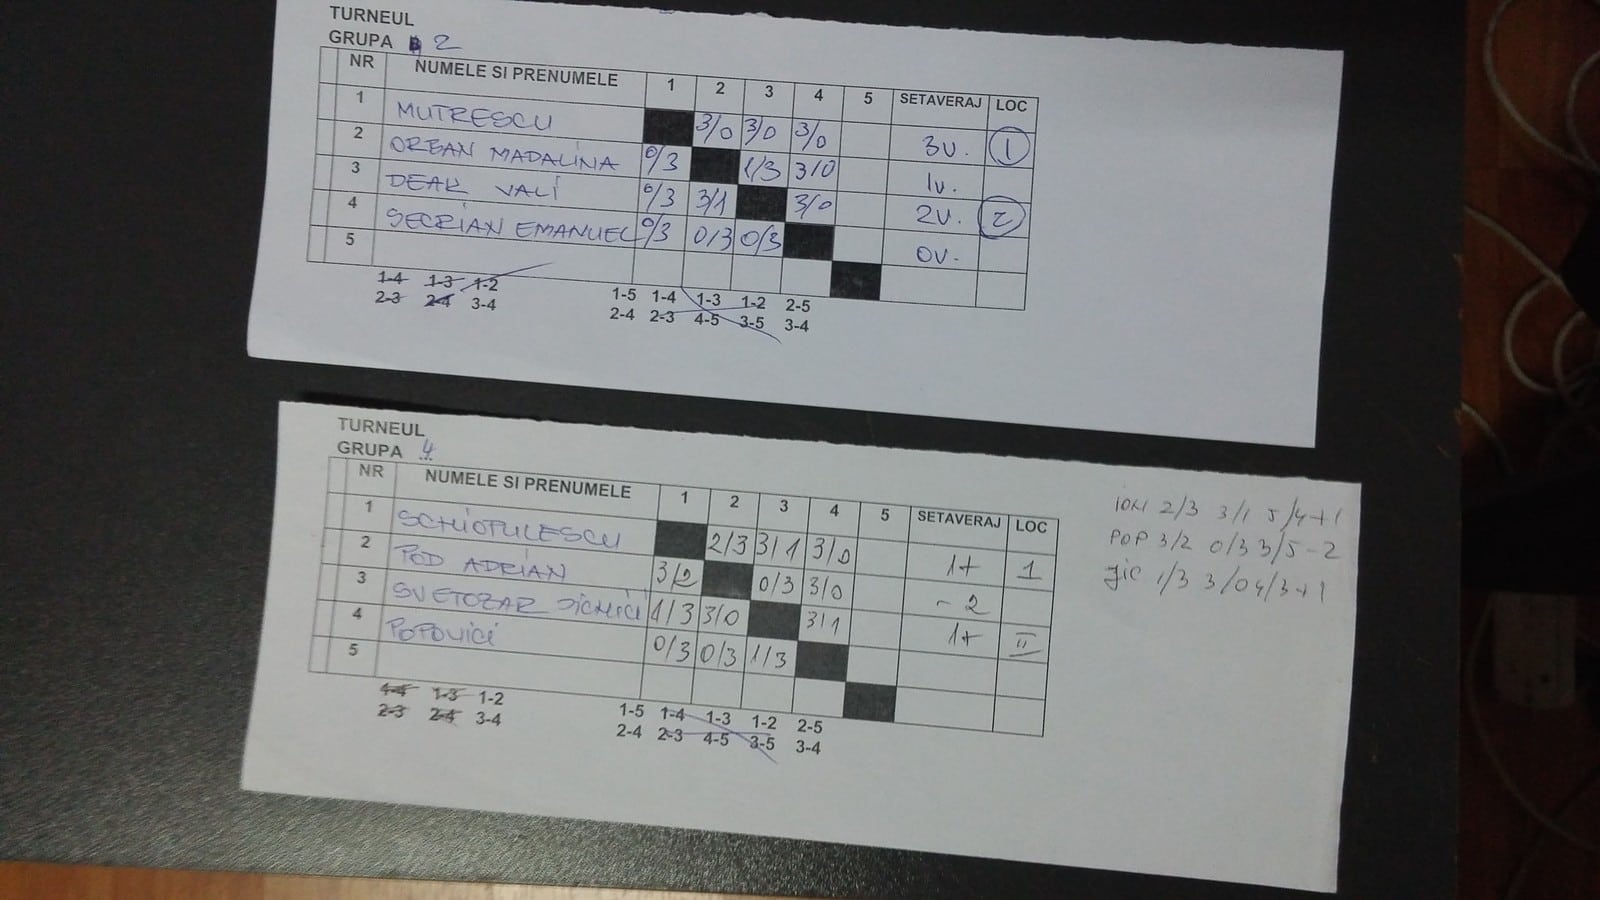 TURNEUL
GRUPA 2
NR NUMELE SI PRENUMELE 1 2 3 4 5 SETAVERAJ LOC
1 MUTRESCU 3/0 3/0 3/0 3v. 1
2 ORBAN MADALINA 0/3 1/3 3/0 1v.
3 DEAK VALI 0/3 3/1 3/0 2v. 2
4 SECRIAN EMANUEL 0/3 0/3 0/3 0v.
5
1-4 1-3 1-2 1-5 1-4 1-3 1-2 2-5
2-3 2-4 3-4 2-4 2-3 4-5 3-5 3-4
TURNEUL
GRUPA 4
NR NUMELE SI PRENUMELE 1 2 3 4 5 SETAVERAJ LOC
1 SCHIOTULESCU 2/3 3/1 3/0 1+ 1
2 POD ADRIAN 3/2 0/3 3/0 -2
3 SVETOZAR 1/3 3/0 3/1 1+ II
4 POPOVICI 0/3 0/3 1/3
5
1-4 1-3 1-2 1-5 1-4 1-3 1-2 2-5
2-3 2-4 3-4 2-4 2-3 4-5 3-5 3-4
ION 2/3 3/1 5/4 +1
POP 3/2 0/3 3/5 -2
jic 1/3 3/0 4/3 +1